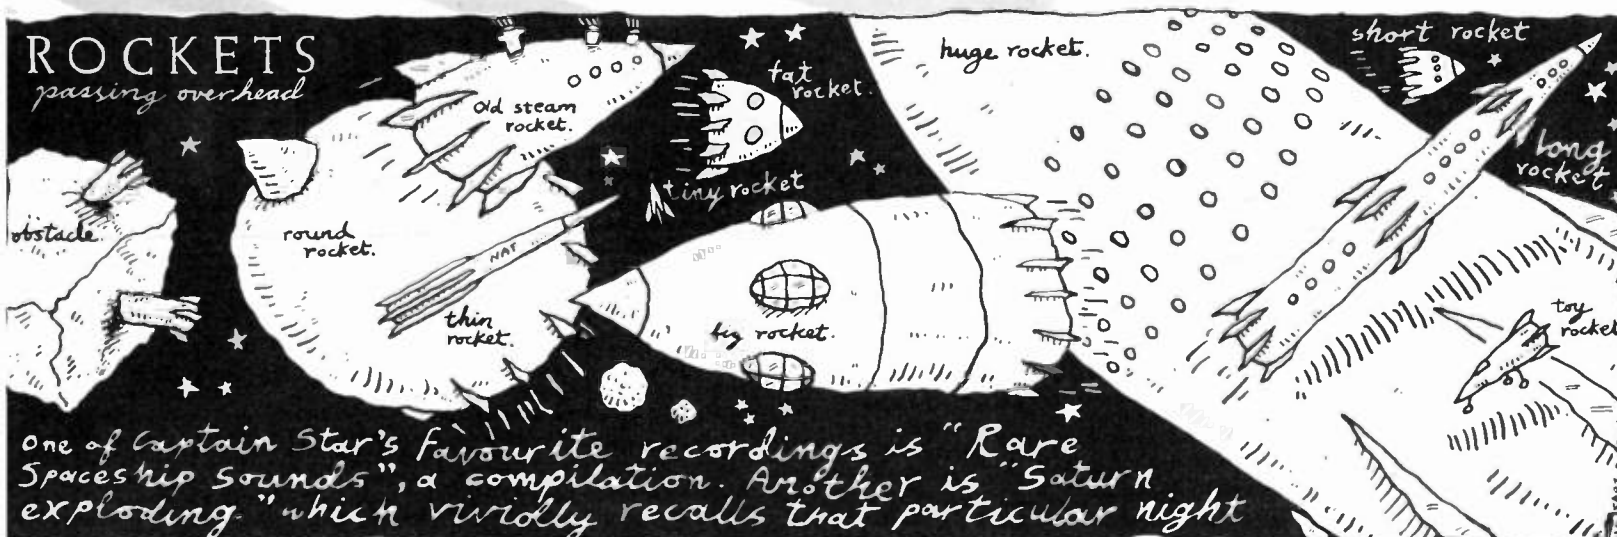 ROCKETS
passing overhead
obstacle.
round
rocket.
Old steam
rocket.
NAT
thin
rocket.
fat
rocket.
tiny rocket
big rocket.
huge rocket.
short rocket
long
rocket
toy
rocket
One of Captain Star's favourite recordings is "Rare
Spaceship Sounds", a compilation. Another is "Saturn
exploding" which vividly recalls that particular night